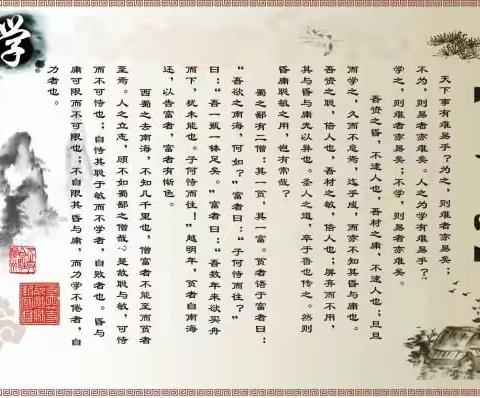 天下事有难易乎？为之，则难者亦易矣；
不为，则易者亦难矣。人之为学有难易乎？
学之，则难者亦易矣；不学，则易者亦难矣。
吾资之昏，不逮人也，吾材之庸，不逮人也；旦旦
而学之，久而不怠焉，迄乎成，而亦不知其昏与庸也。
吾资之聪，倍人也，吾材之敏，倍人也；屏弃而不用，
其与昏与庸无以异也。圣人之道，卒于鲁也传之。然则
昏庸聪敏之用，岂有常哉？
蜀之鄙有二僧：其一贫，其一富。贫者语于富者曰：
“吾欲之南海，何如？”富者曰：“子何恃而往？”
曰：“吾一瓶一钵足矣。”富者曰：“吾数年来欲买舟
而下，犹未能也。子何恃而往！”越明年，贫者自南海
还，以告富者，富者有惭色。
西蜀之去南海，不知几千里也，僧富者不能至而贫者
至焉。人之立志，顾不如蜀鄙之僧哉？是故聪与敏，可恃
而不可恃也；自恃其聪与敏而不学者，自败者也。昏与
庸可限而不可限也；不自限其昏与庸，而力学不倦者，自
力者也。
学